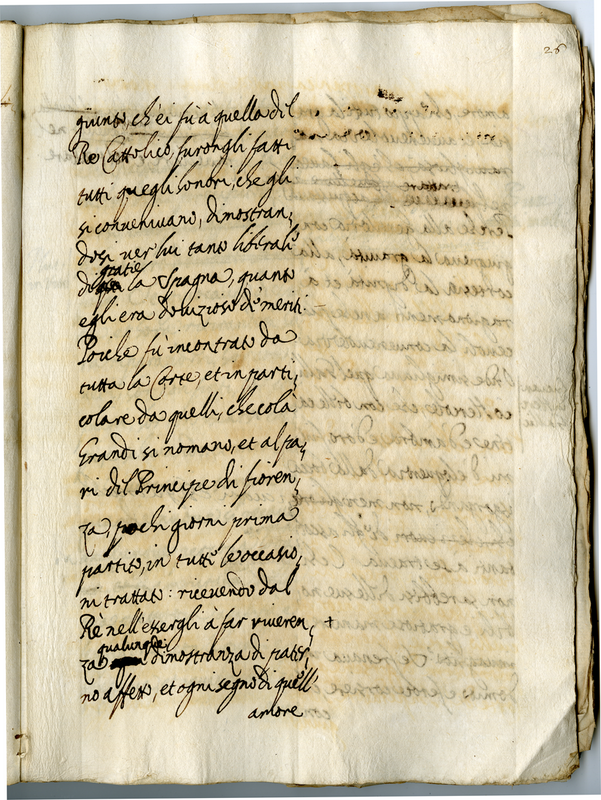 26
giunto, ch'ei fù à quella dil
Re Cattolico, furongli fatti
tutti quegli honori, che gli
si convenivano, dimostran,
dosi ver' lui tanto liberale
di gratie la Spagna, quanto
egli era dovizioso de' meriti.
Poiche fù incontrato da
tutta la Corte, et in parti,
colare da quelli, che colà
Grandi si nomano, et al pa,
ri dil Principe di fioren,
za, pochi giorni prima
partito, in tutte le occasio,
ni trattato: ricevendo dal
Rè nell'essergli à far riveren, +
za qualunque dimostranza di pater,
no affetto, et ogni segno di quell'
amore